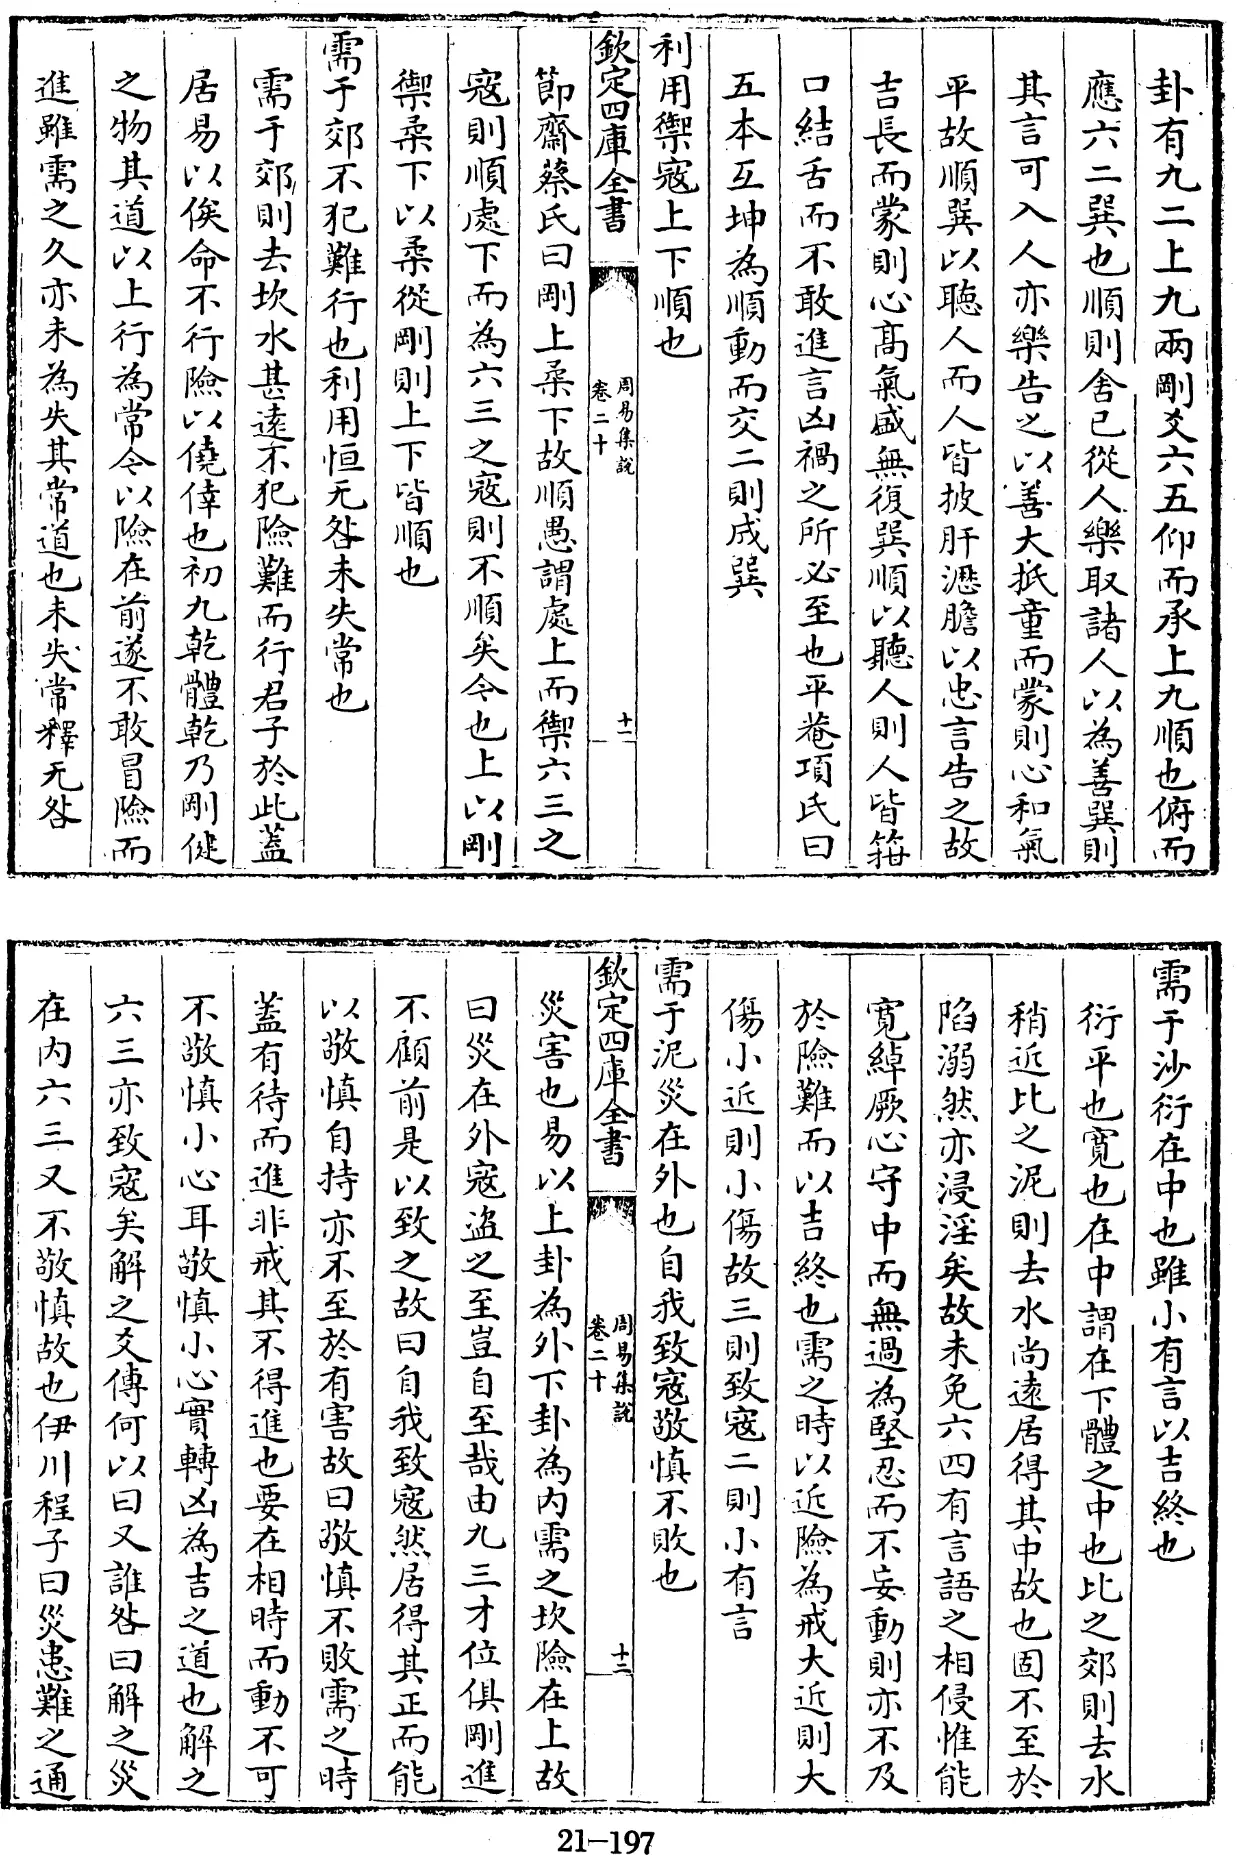 卦有九二上九兩剛爻六五仰而承上九順也俯而
應六二巽也順則舍已從人樂取諸人以為善巽則
其言可入人亦樂告之以善大抵童而蒙則心和氣
平故順巽以聽人而人皆披肝瀝膽以忠言告之故
吉長而蒙則心髙氣盛無復巽順以聽人則人皆箝
口結舌而不敢進言凶禍之所必至也平菴項氏曰
五本互坤為順動而交二則成巽
利用禦寇上下順也
欽定四庫全書
周易集說
卷二十
十一
節齋蔡氏曰剛上柔下故順愚謂處上而禦六三之
寇則順處下而為六三之寇則不順矣今也上以剛
禦柔下以柔從剛則上下皆順也
需于郊不犯難行也利用恒无咎未失常也
需于郊則去坎水甚逺不犯險難而行君子於此蓋
居易以俟命不行險以僥倖也初九乾體乾乃剛健
之物其道以上行為常今以險在前遂不敢冒險而
進雖需之久亦未為失其常道也未失常釋无咎
需于沙衍在中也雖小有言以吉終也
衍平也寛也在中謂在下體之中也比之郊則去水
稍近比之泥則去水尚逺居得其中故也固不至於
陷溺然亦浸淫矣故未免六四有言語之相侵惟能
寛綽厥心守中而無過為堅忍而不妄動則亦不及
於險難而以吉終也需之時以近險為戒大近則大
傷小近則小傷故三則致寇二則小有言
需于泥災在外也自我致寇敬慎不敗也
欽定四庫全書
周易集說
卷二十
十二
災害也易以上卦為外下卦為内需之坎險在上故
曰災在外寇盗之至豈自至哉由九三才位俱剛進
不顧前是以致之故曰自我致寇然居得其正而能
以敬慎自持亦不至於有害故曰敬慎不敗需之時
蓋有待而進非戒其不得進也要在相時而動不可
不敬慎小心耳敬慎小心實轉凶為吉之道也解之
六三亦致寇矣解之爻傳何以曰又誰咎曰解之災
在内六三又不敬慎故也伊川程子曰災患難之通
21-197